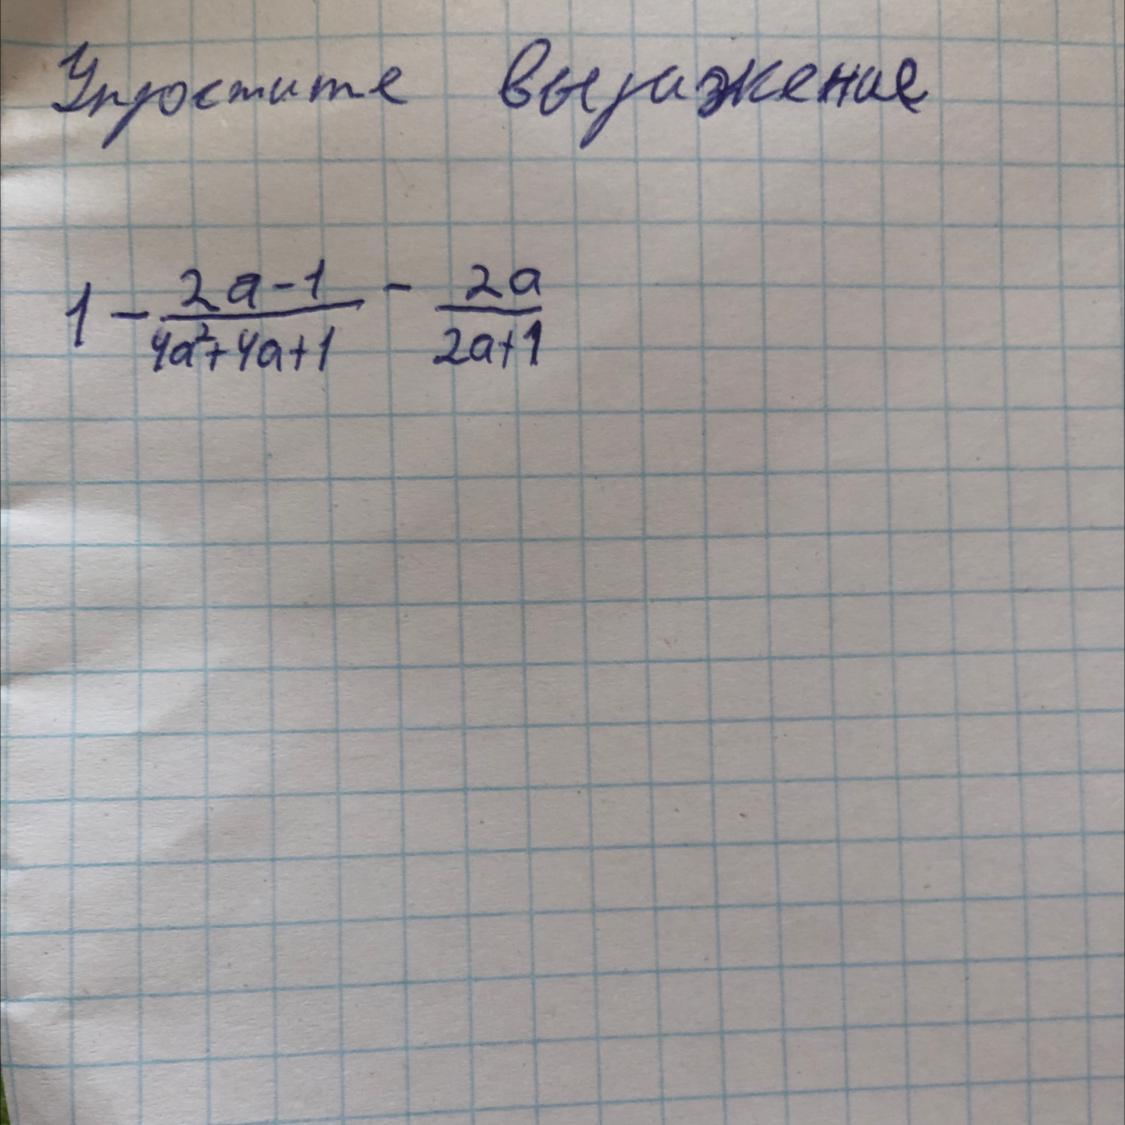 Упростите выражение
1 - \frac{2a-1}{4a²+4a+1} - \frac{2a}{2a+1}